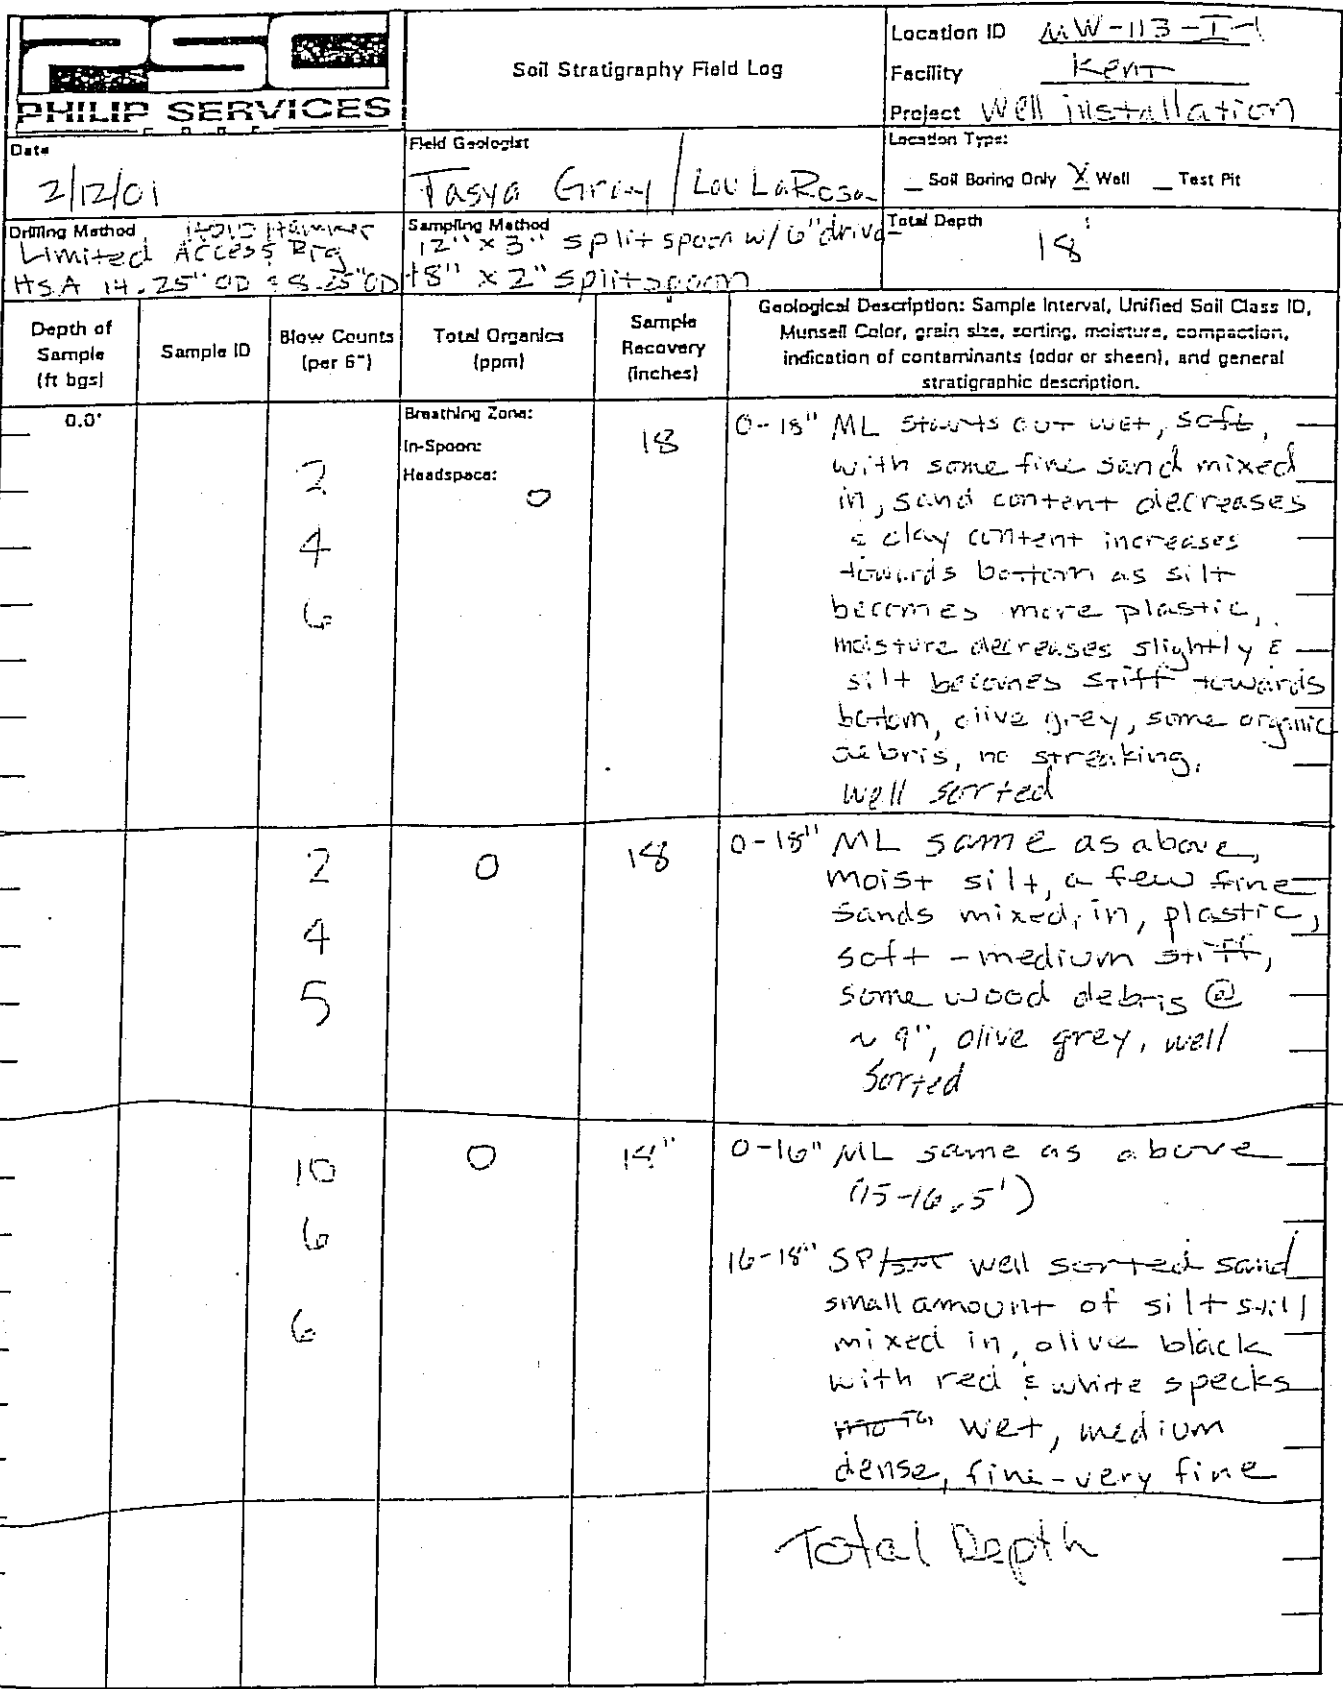 PSC
PHILIP SERVICES
CORP
Soil Stratigraphy Field Log
Location ID MW-113-I-1
Facility Kent
Project Well installation
Date
2/12/01
Field Geologist
Tasya Gray / Lou LaRosa
Location Type:
_ Soil Boring Only X Well _ Test Pit
Drilling Method Hammer
Limited Access Rig
HSA 14.25" OD & 8.25" OD
Sampling Method
12" x 3" split spoon w/ 6" drive
18" x 2" split spoon
Total Depth
18'
Depth of
Sample
(ft bgs)
Sample ID
Blow Counts
(per 6")
Total Organics
(ppm)
Sample
Recovery
(inches)
Geological Description: Sample Interval, Unified Soil Class ID,
Munsell Color, grain size, sorting, moisture, compaction,
indication of contaminants (odor or sheen), and general
stratigraphic description.
0.0'
2
4
6
Breathing Zone:
In-Spoon:
Headspace:
0
18
0-18" ML starts out wet, soft,
with some fine sand mixed
in, sand content decreases
& clay content increases
towards bottom as silt
becomes more plastic,
moisture decreases slightly &
silt becomes stiff towards
bottom, olive grey, some organic
debris, no streaking,
well sorted
2
4
5
0
18
0-18" ML same as above,
moist silt, a few fine
sands mixed in, plastic,
soft - medium stiff,
some wood debris @
~ 9", olive grey, well
sorted
10
6
6
0
18"
0-16" ML same as above
(15-16.5')
16-18" SP well sorted sand
small amount of silt still
mixed in, olive black
with red & white specks
wet, medium
dense, fine-very fine
Total Depth